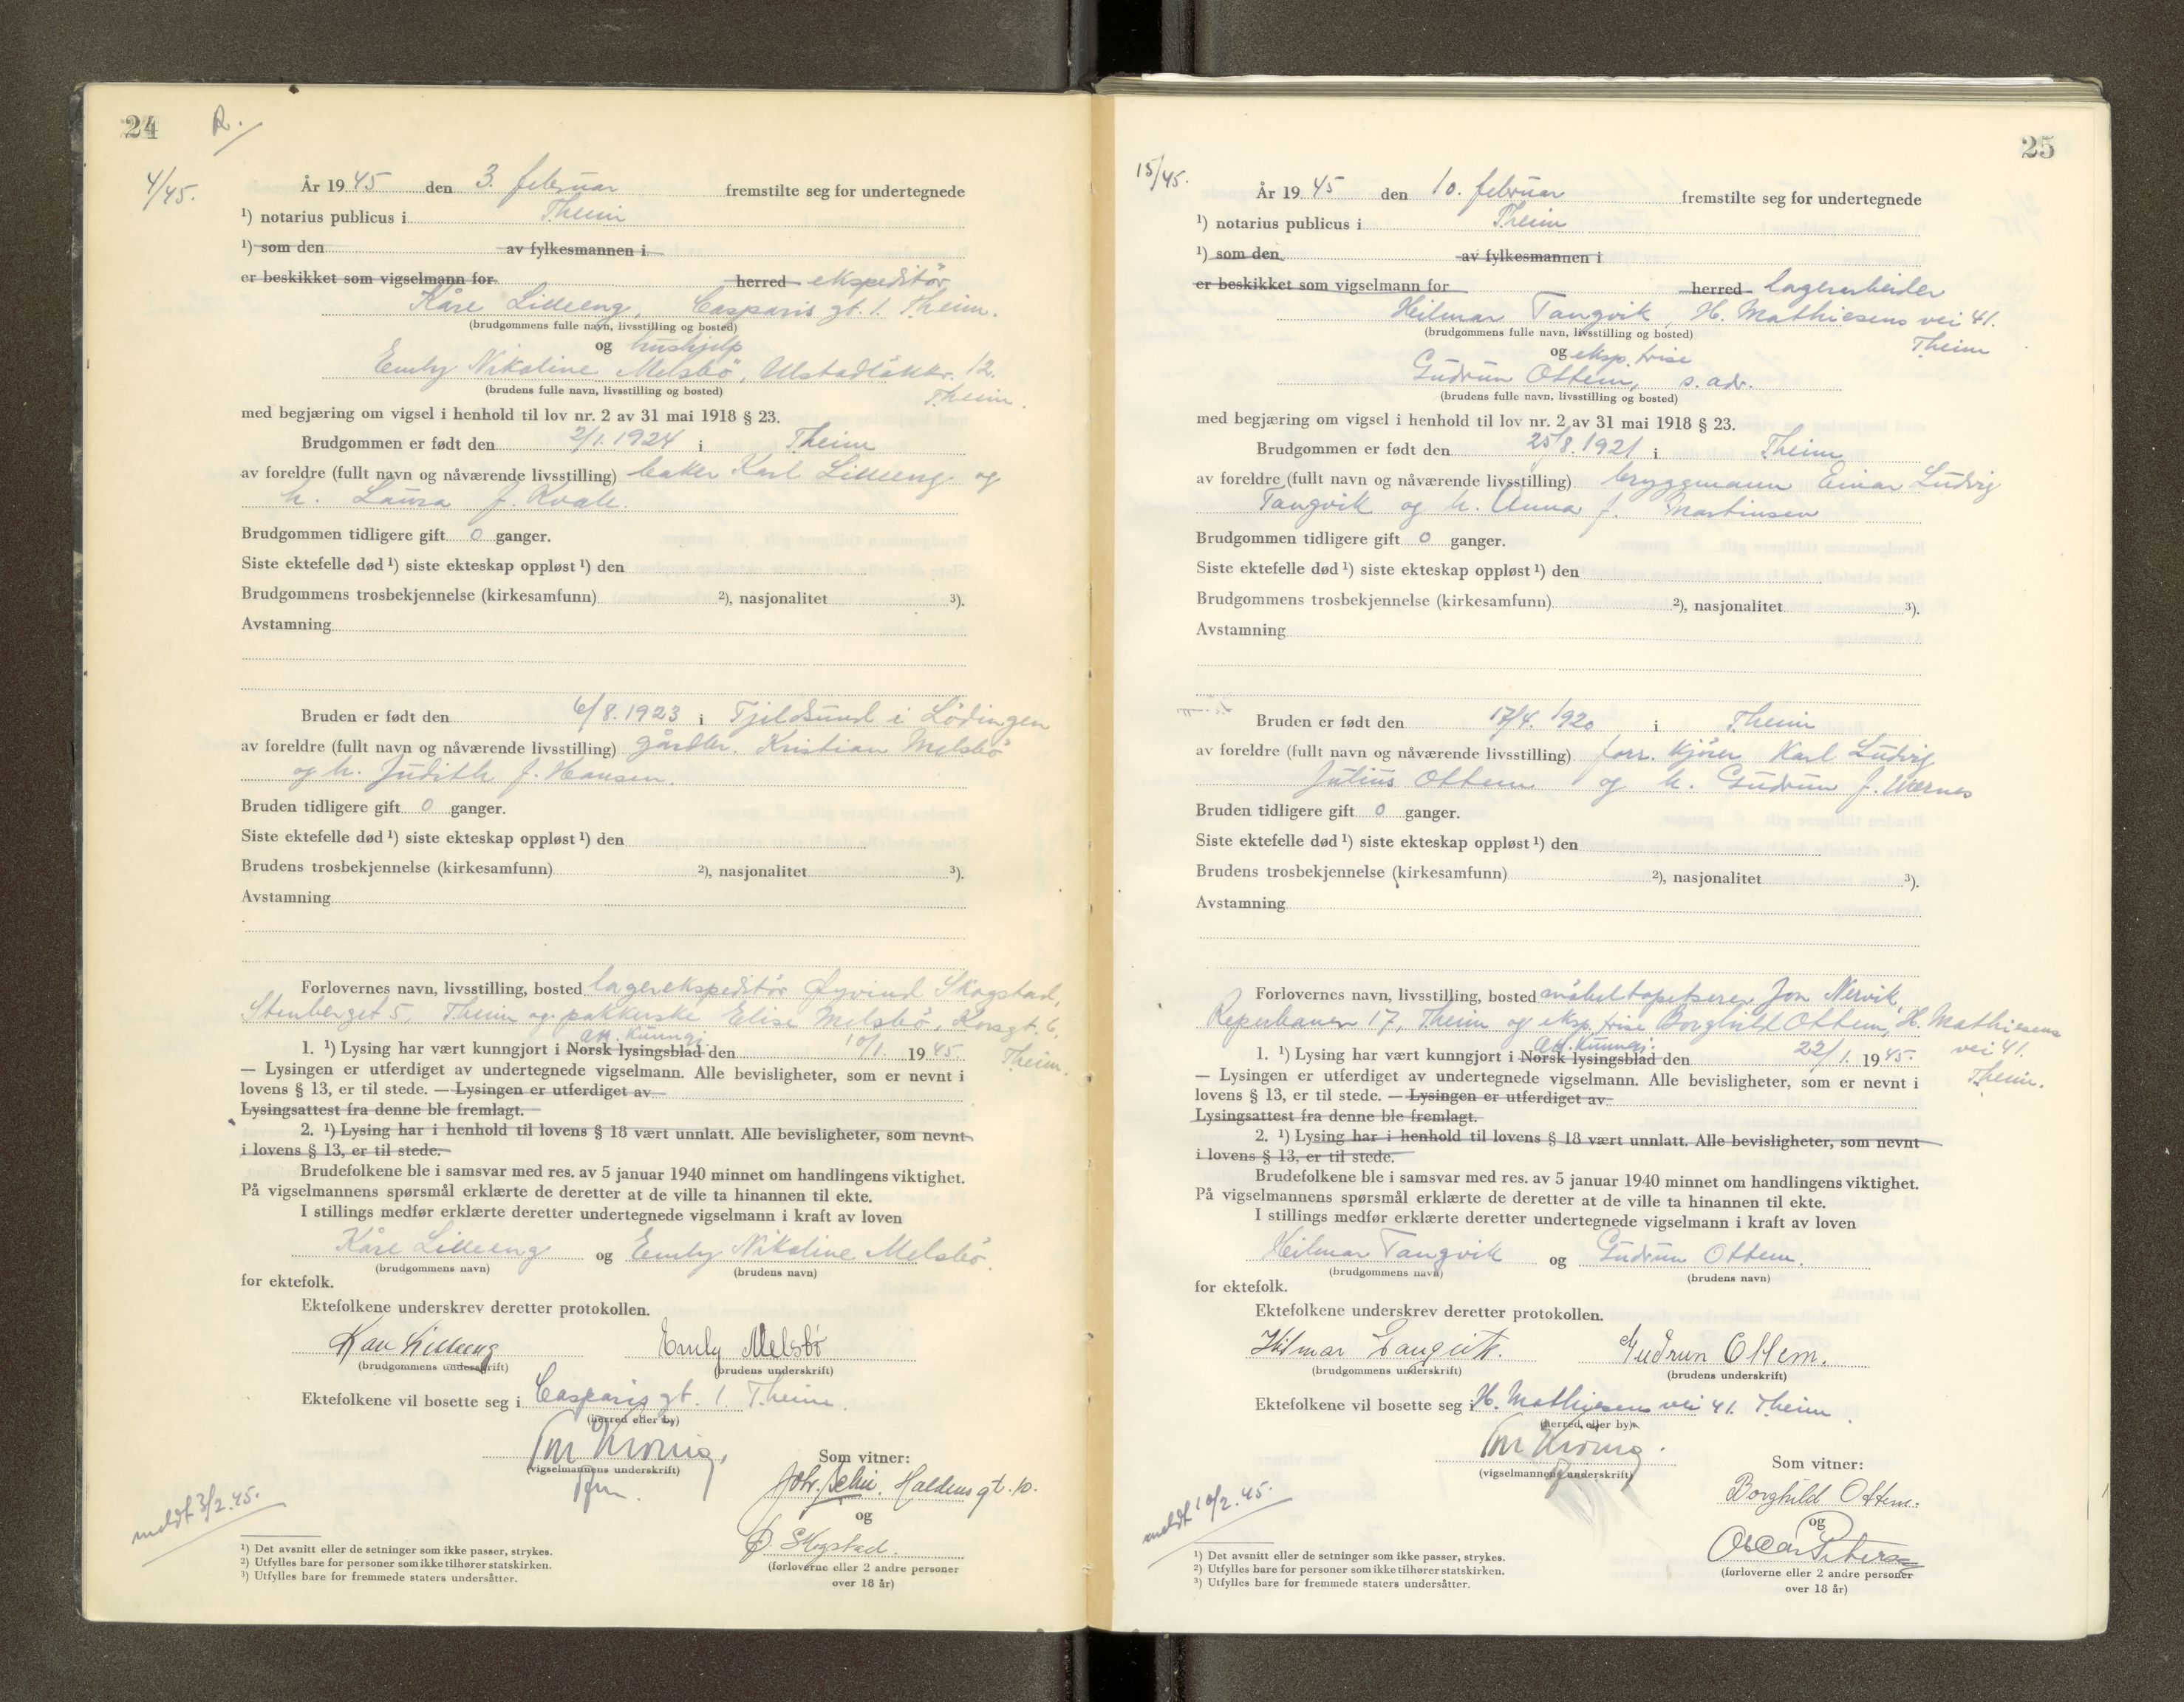 24
R.
4/45.
År 1945 den 3. februar fremstilte seg for undertegnede
¹) notarius publicus i Theim
¹) som den av fylkesmannen i
er beskikket som vigselmann for herred ekspeditör
Kåre Lilleeng, Casparis gt. 1. Theim.
(brudgommens fulle navn, livsstilling og bosted)
og hushjelp
Emly Nikoline Melsbö, Ulstadløkkv. 12.
Theim.
(brudens fulle navn, livsstilling og bosted)
med begjæring om vigsel i henhold til lov nr. 2 av 31 mai 1918 § 23.
Brudgommen er født den 2/1. 1924 i Theim
av foreldre (fullt navn og nåværende livsstilling) baker Karl Lilleeng og
h. Laura f. Kvale.
Brudgommen tidligere gift 0 ganger.
Siste ektefelle død ¹) siste ekteskap oppløst ¹) den
Brudgommens trosbekjennelse (kirkesamfunn) ²), nasjonalitet ³).
Avstamning
Bruden er født den 6/8. 1923 i Tjeldsund i Lödingen
av foreldre (fullt navn og nåværende livsstilling) gårdbr. Kristian Melsbö
og h. Judith f. Hansen.
Bruden tidligere gift 0 ganger.
Siste ektefelle død ¹) siste ekteskap oppløst ¹) den
Brudens trosbekjennelse (kirkesamfunn) ²), nasjonalitet ³).
Avstamning
Forlovernes navn, livsstilling, bosted lagerekspeditör Øyvind Skogstad,
Stenberget 5, Theim og pakkerske Elise Melsbö, Korsgt. 6,
Theim.
Att. Kunngj.
1. ¹) Lysing har vært kunngjort i Norsk lysingsblad den 10/1. 1945.
— Lysingen er utferdiget av undertegnede vigselmann. Alle bevisligheter, som er nevnt i
lovens § 13, er til stede. — Lysingen er utferdiget av
Lysingsattest fra denne ble fremlagt.
2. ¹) Lysing har i henhold til lovens § 18 vært unnlatt. Alle bevisligheter, som nevnt
i lovens § 13, er til stede.
Brudefolkene ble i samsvar med res. av 5 januar 1940 minnet om handlingens viktighet.
På vigselmannens spørsmål erklærte de deretter at de ville ta hinannen til ekte.
I stillings medfør erklærte deretter undertegnede vigselmann i kraft av loven
Kåre Lilleeng og Emly Nikoline Melsbö.
(brudgommens navn) (brudens navn)
for ektefolk.
Ektefolkene underskrev deretter protokollen.
Kåre Lilleeng Emly Melsbö
(brudgommens underskrift) (brudens underskrift)
Ektefolkene vil bosette seg i Casparis gt. 1. Theim.
(herred eller by)
(vigselmannens underskrift)
Som vitner:
Haldens gt. 10.
og
Ø. Skogstad.
(forloverne eller 2 andre personer
over 18 år)
meldt 3/2.45.
¹) Det avsnitt eller de setninger som ikke passer, strykes.
²) Utfylles bare for personer som ikke tilhører statskirken.
³) Utfylles bare for fremmede staters undersåtter.
25
15/45.
År 1945 den 10. februar fremstilte seg for undertegnede
¹) notarius publicus i Theim
¹) som den av fylkesmannen i
er beskikket som vigselmann for herred lagerarbeider
Hilmar Tangvik, H. Mathiesens vei 41.
Theim
(brudgommens fulle navn, livsstilling og bosted)
og eksp. trise
Gudrun Ottem, s. adr.
(brudens fulle navn, livsstilling og bosted)
med begjæring om vigsel i henhold til lov nr. 2 av 31 mai 1918 § 23.
Brudgommen er født den 25/8. 1921 i Theim
av foreldre (fullt navn og nåværende livsstilling) bryggmann Einar Ludvig
Tangvik og h. Anna f. Martinsen
Brudgommen tidligere gift 0 ganger.
Siste ektefelle død ¹) siste ekteskap oppløst ¹) den
Brudgommens trosbekjennelse (kirkesamfunn) ²), nasjonalitet ³).
Avstamning
Bruden er født den 17/4. 1920 i Theim
av foreldre (fullt navn og nåværende livsstilling) forr. kjörer Karl Ludvig
Julius Ottem og h. Gudrun f. Wærnes
Bruden tidligere gift 0 ganger.
Siste ektefelle død ¹) siste ekteskap oppløst ¹) den
Brudens trosbekjennelse (kirkesamfunn) ²), nasjonalitet ³).
Avstamning
Forlovernes navn, livsstilling, bosted möbeltapetserer Jon Nervik,
Reperbanen 17, Theim og eksp. trise Borghild Ottem, H. Mathiesens
vei 41.
Theim.
Att. Kunngj.
1. ¹) Lysing har vært kunngjort i Norsk lysingsblad den 22/1. 1945.
— Lysingen er utferdiget av undertegnede vigselmann. Alle bevisligheter, som er nevnt i
lovens § 13, er til stede. — Lysingen er utferdiget av
Lysingsattest fra denne ble fremlagt.
2. ¹) Lysing har i henhold til lovens § 18 vært unnlatt. Alle bevisligheter, som nevnt
i lovens § 13, er til stede.
Brudefolkene ble i samsvar med res. av 5 januar 1940 minnet om handlingens viktighet.
På vigselmannens spørsmål erklærte de deretter at de ville ta hinannen til ekte.
I stillings medfør erklærte deretter undertegnede vigselmann i kraft av loven
Hilmar Tangvik og Gudrun Ottem.
(brudgommens navn) (brudens navn)
for ektefolk.
Ektefolkene underskrev deretter protokollen.
Hilmar Tangvik. Gudrun Ottem.
(brudgommens underskrift) (brudens underskrift)
Ektefolkene vil bosette seg i H. Mathiesens vei 41. Theim.
(herred eller by)
(vigselmannens underskrift)
Som vitner:
Borghild Ottem.
og
Oscar
(forloverne eller 2 andre personer
over 18 år)
meldt 10/2.45.
¹) Det avsnitt eller de setninger som ikke passer, strykes.
²) Utfylles bare for personer som ikke tilhører statskirken.
³) Utfylles bare for fremmede staters undersåtter.